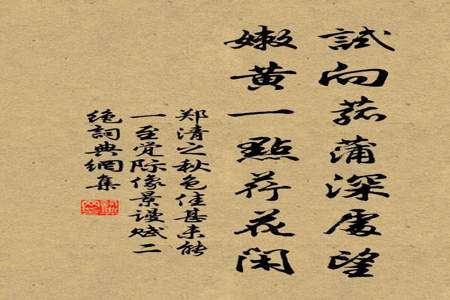 試向菰蒲深處望
嫩黃一點荇花閑
郑清之秋色佳甚未能
一至觉际像景谩赋二
绝詞典網集